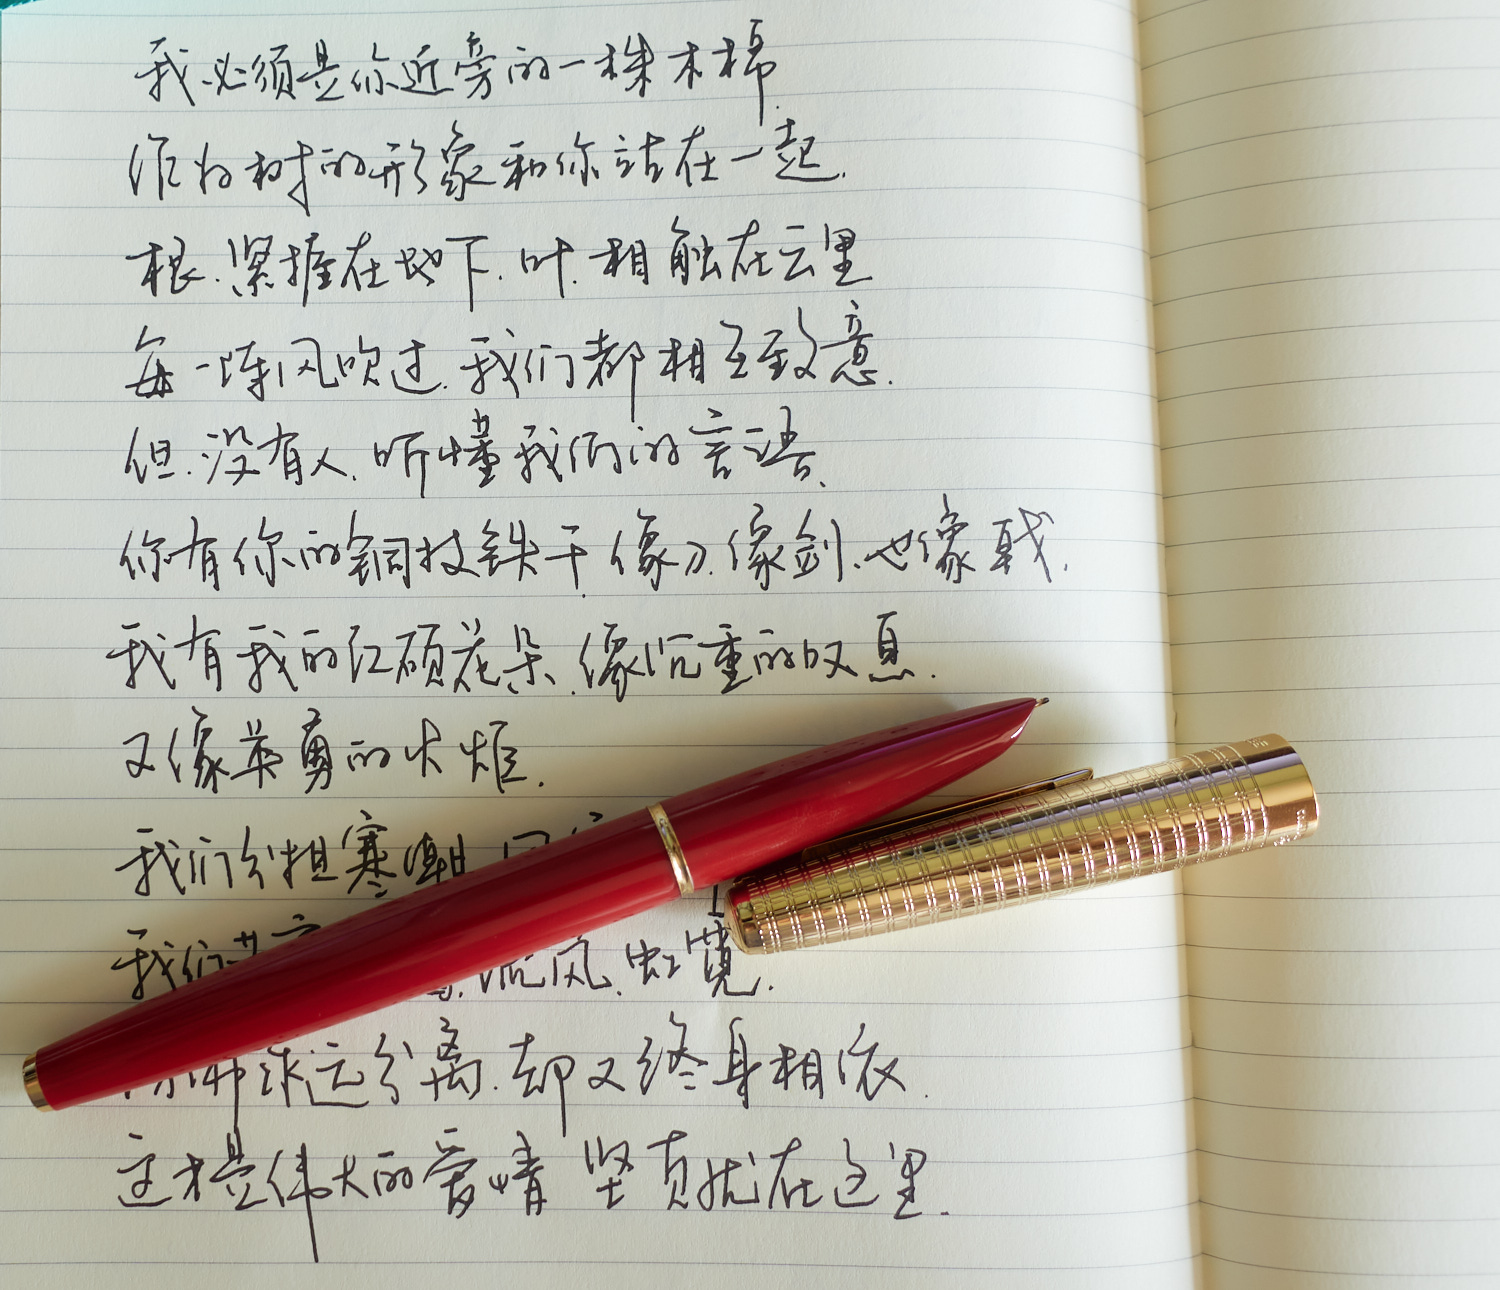 我必须是你近旁的一株木棉
作为树的形象和你站在一起.
根.紧握在地下.叶.相触在云里
每一阵风吹过.我们都相互致意.
但.没有人.听懂我们的言语.
你有你的铜枝铁干.像刀.像剑.也像戟.
我有我的红硕花朵.像沉重的叹息.
又像英勇的火炬.
我们分担寒潮
我们 流风.虹霓.
仿佛永远分离.却又终身相依.
这才是伟大的爱情 坚贞就在这里.